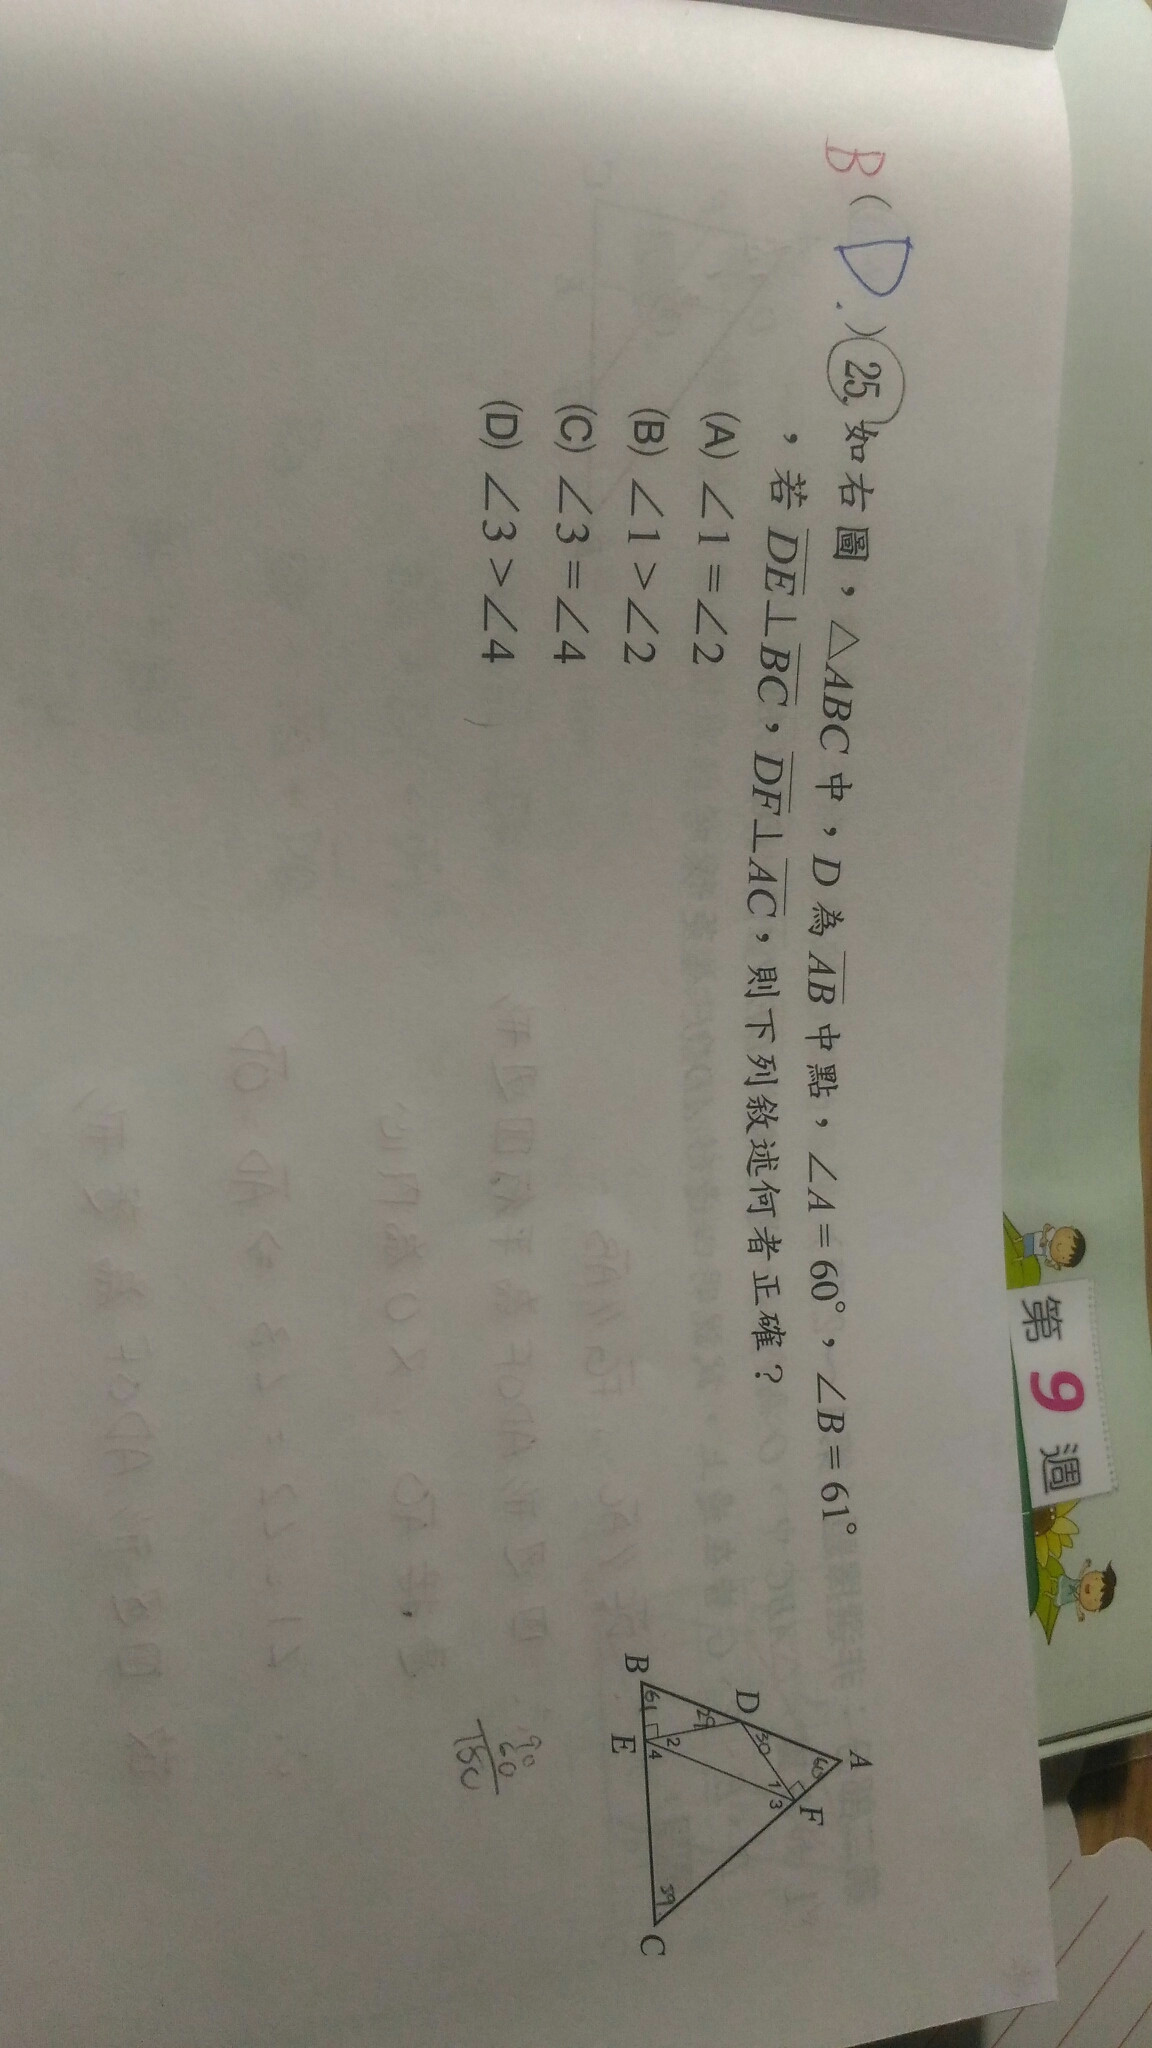 第9週
B ( D. ) 25. 如右圖，△ABC 中，D 為 AB 中點，∠A＝60°，∠B＝61°
，若 DE⊥BC，DF⊥AC，則下列敘述何者正確？
(A) ∠1＝∠2
(B) ∠1＞∠2
(C) ∠3＝∠4
(D) ∠3＞∠4
A
60
F
D
30
1
3
29
2
61
4
59
B
E
C
90
60
150